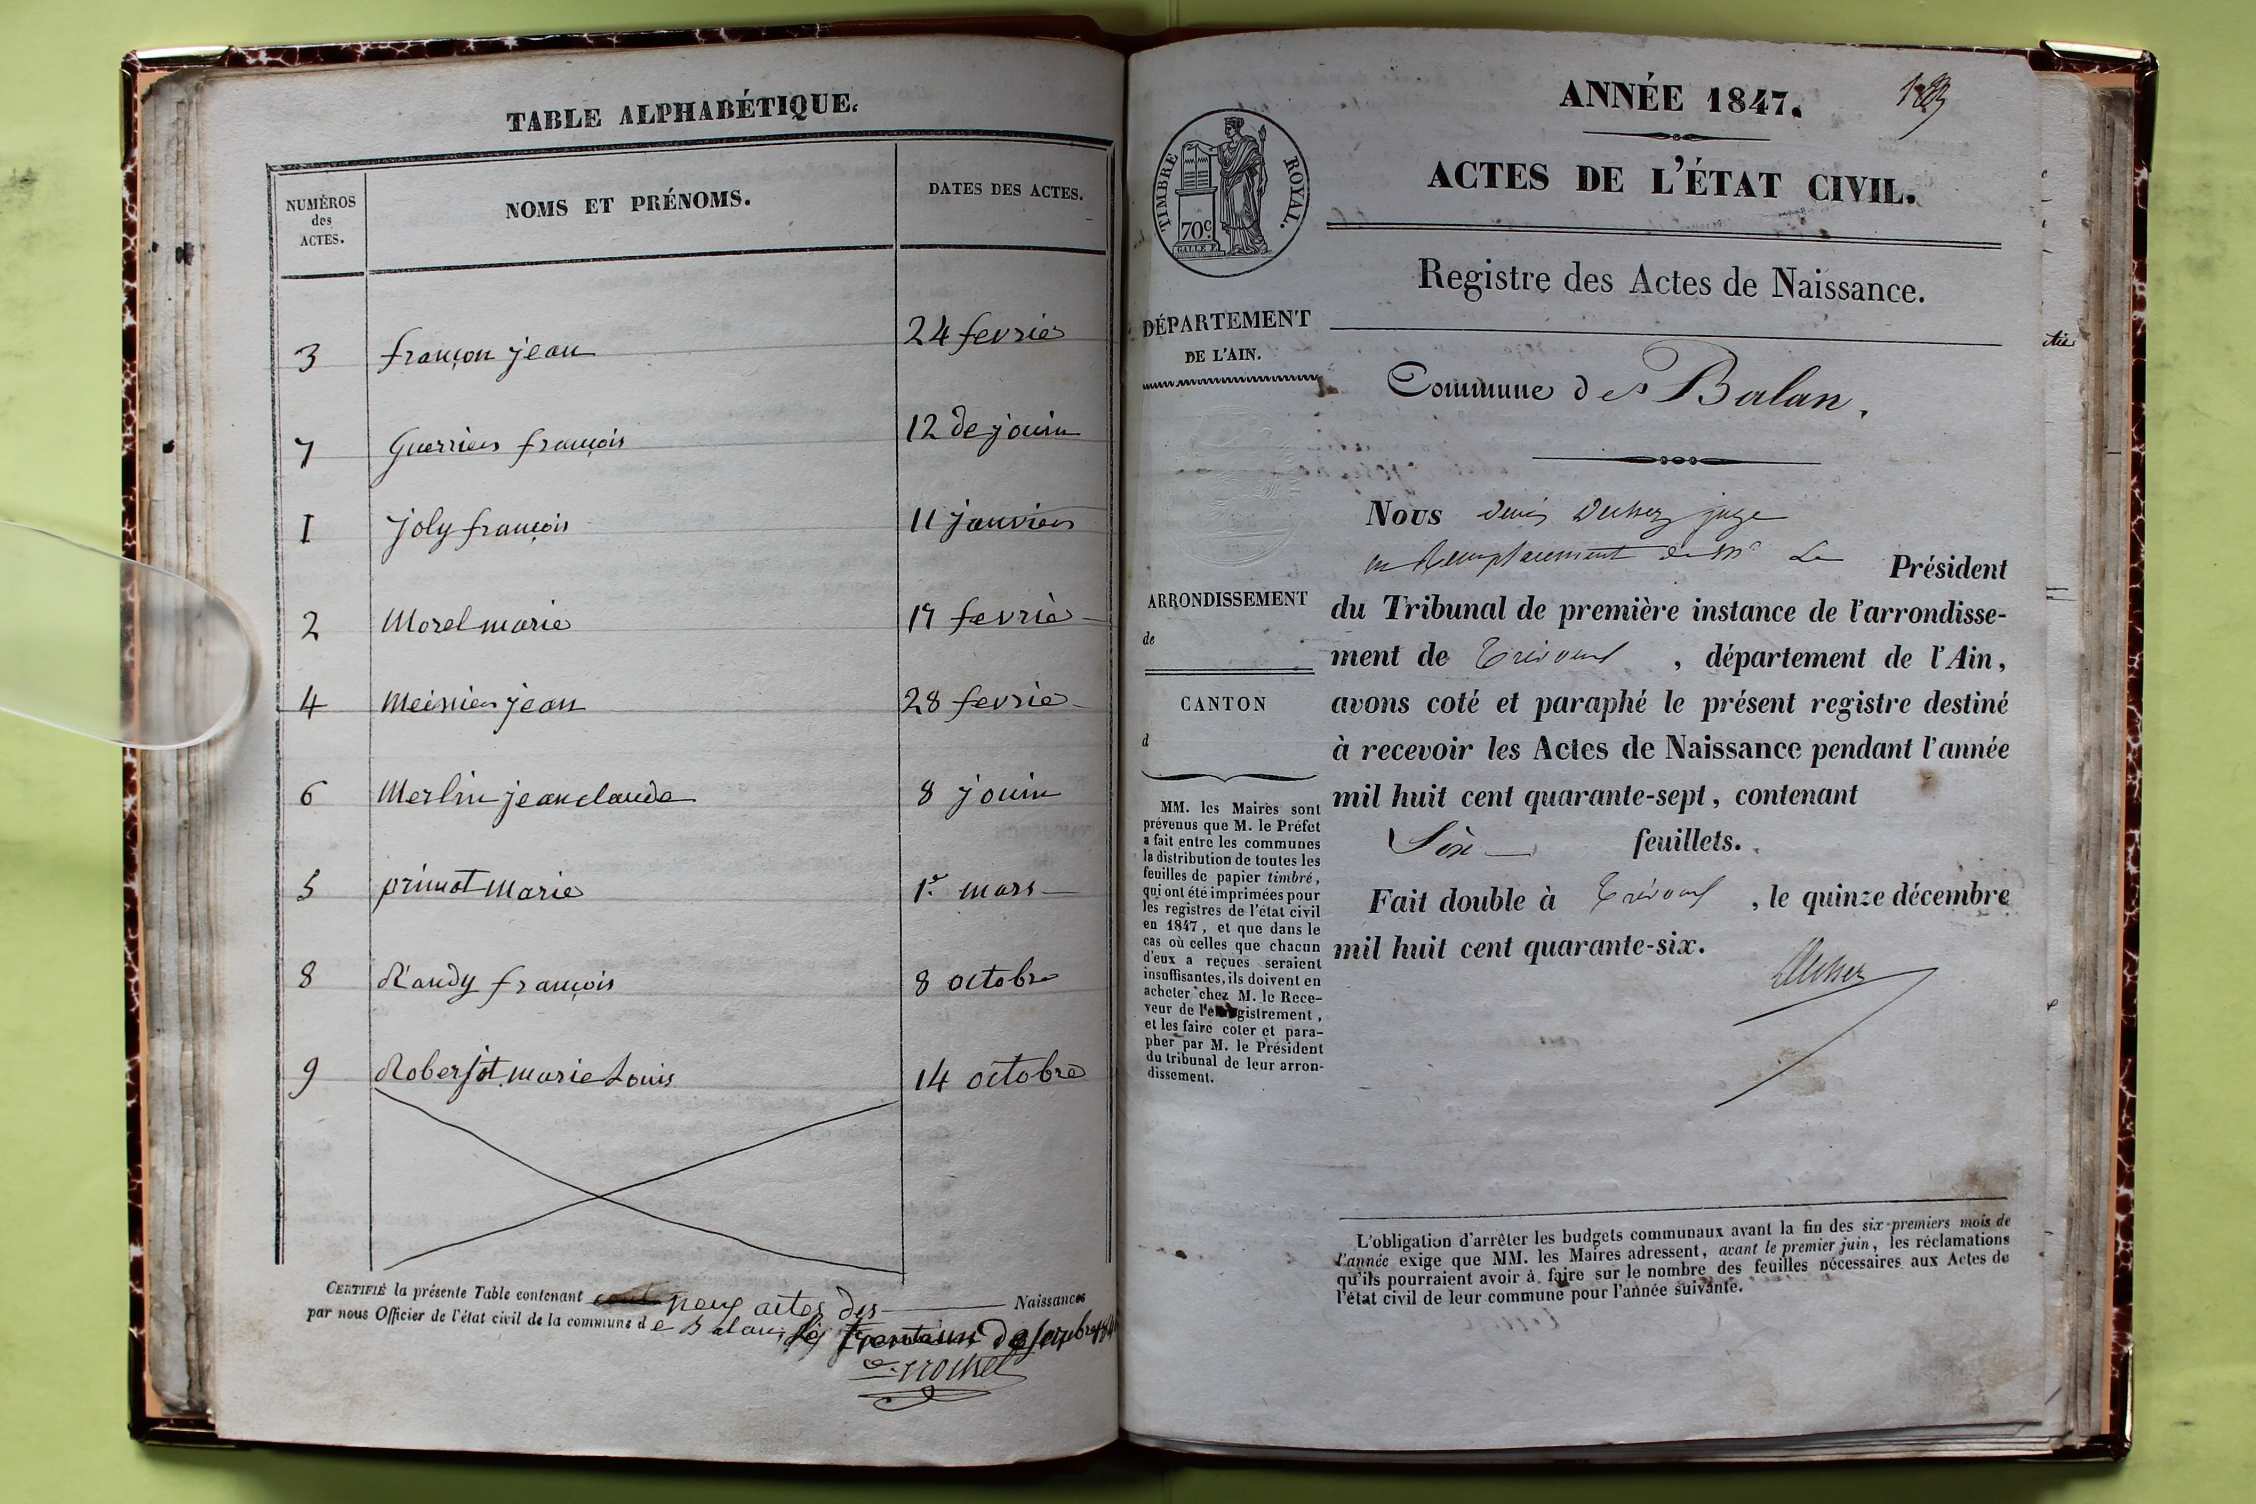 TABLE ALPHABÉTIQUE.
NUMÉROS des ACTES. NOMS ET PRÉNOMS. DATES DES ACTES.
3 françon jean 24 fevrier
7 Guerrier françois 12 de jouin
1 joly françois 11 janvier
2 Morel marie 17 fevrie
4 Meinier jean 28 fevrie
6 Merlin jean claude 8 jouin
5 primat Marie 1er mars
8 Randy françois 8 octobre
9 Roberjot marie Louis 14 octobre
CERTIFIÉ la présente Table contenant neuf actes des Naissances
par nous Officier de l'état civil de la commune de Balan, le trente un
ANNÉE 1847.
ACTES DE L'ÉTAT CIVIL.
TIMBRE ROYAL.
70c.
Registre des Actes de Naissance.
DÉPARTEMENT
DE L'AIN.
Commune de Balan.
Nous Denis Ducher juge
en Remplacement de Mr Le Président
du Tribunal de première instance de l'arrondisse-
ment de Trévoux, département de l'Ain,
avons coté et paraphé le présent registre destiné
à recevoir les Actes de Naissance pendant l'année
mil huit cent quarante-sept, contenant
Six feuillets.
Fait double à Trévoux, le quinze décembre
mil huit cent quarante-six.
Ducher
ARRONDISSEMENT
de
CANTON
d
MM. les Maires sont
prévenus que M. le Préfet
a fait entre les communes
la distribution de toutes les
feuilles de papier timbré,
qui ont été imprimées pour
les registres de l'état civil
en 1847, et que dans le
cas où celles que chacun
d'eux a reçues seraient
insuffisantes, ils doivent en
acheter chez M. le Rece-
veur de l'enregistrement,
et les faire coter et para-
pher par M. le Président
du tribunal de leur arron-
dissement.
L'obligation d'arrêter les budgets communaux avant la fin des six premiers mois de
l'année exige que MM. les Maires adressent, avant le premier juin, les réclamations
qu'ils pourraient avoir à faire sur le nombre des feuilles nécessaires aux Actes de
l'état civil de leur commune pour l'année suivante.